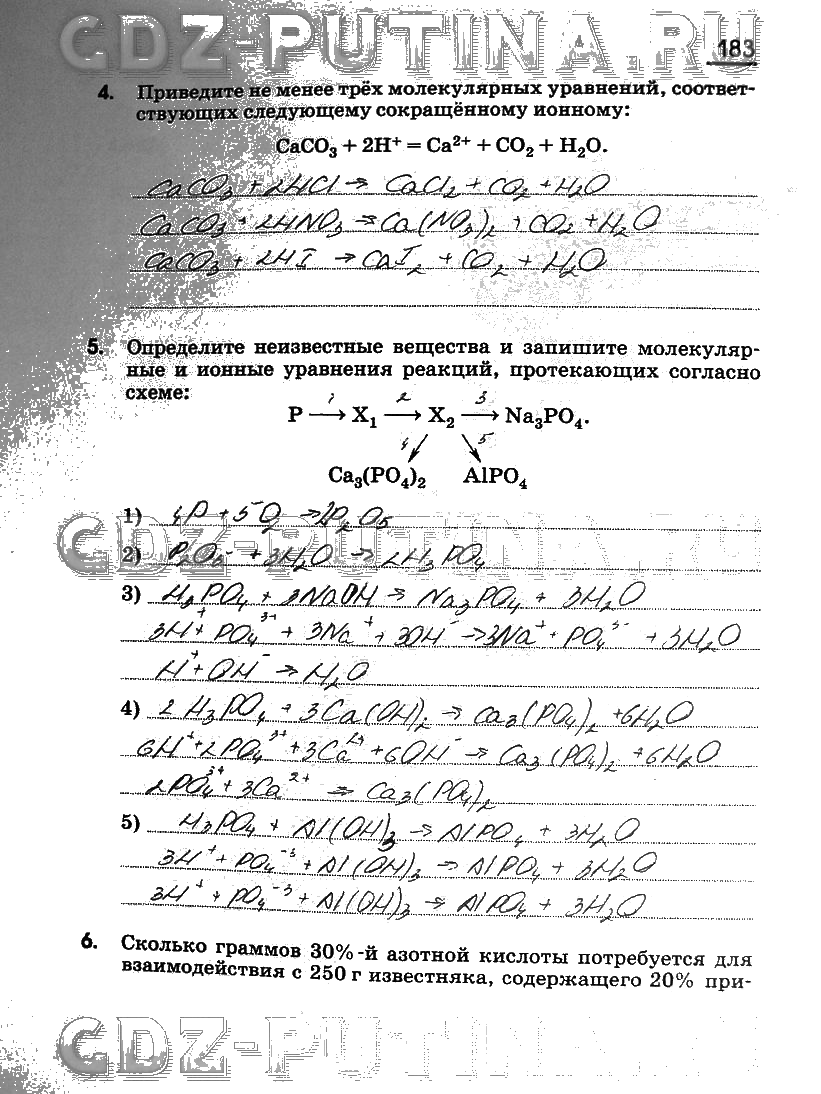 GDZ-PUTINA.RU
183
4. Приведите не менее трёх молекулярных уравнений, соответ-
ствующих следующему сокращённому ионному:
CaCO₃ + 2H⁺ = Ca²⁺ + CO₂ + H₂O.
CaCO₃ + 2HCl → CaCl₂ + CO₂ + H₂O
CaCO₃ + 2HNO₃ → Ca(NO₃)₂ + CO₂ + H₂O
CaCO₃ + 2HI → CaI₂ + CO₂ + H₂O
5. Определите неизвестные вещества и запишите молекуляр-
ные и ионные уравнения реакций, протекающих согласно
схеме:
1 2 3
P → X₁ → X₂ → Na₃PO₄.
4 5
Ca₃(PO₄)₂ AlPO₄
1) 4P + 5O₂ → 2P₂O₅
GDZ-PUTINA.RU
2) P₂O₅ + 3H₂O → 2H₃PO₄
3) H₃PO₄ + 3NaOH → Na₃PO₄ + 3H₂O
3H⁺ + PO₄³⁺ + 3Na⁺ + 3OH⁻ → 3Na⁺ + PO₄³⁻ + 3H₂O
H⁺ + OH⁻ → H₂O
4) 2H₃PO₄ + 3Ca(OH)₂ → Ca₃(PO₄)₂ + 6H₂O
6H⁺ + 2PO₄³⁺ + 3Ca²⁺ + 6OH⁻ → Ca₃(PO₄)₂ + 6H₂O
2PO₄³⁺ + 3Ca²⁺ → Ca₃(PO₄)₂
5) H₃PO₄ + Al(OH)₃ → AlPO₄ + 3H₂O
3H⁺ + PO₄⁻³ + Al(OH)₃ → AlPO₄ + 3H₂O
3H⁺ + PO₄⁻³ + Al(OH)₃ → AlPO₄ + 3H₂O
6. Сколько граммов 30%-й азотной кислоты потребуется для
взаимодействия с 250 г известняка, содержащего 20% при-
GDZ-PUTINA.RU